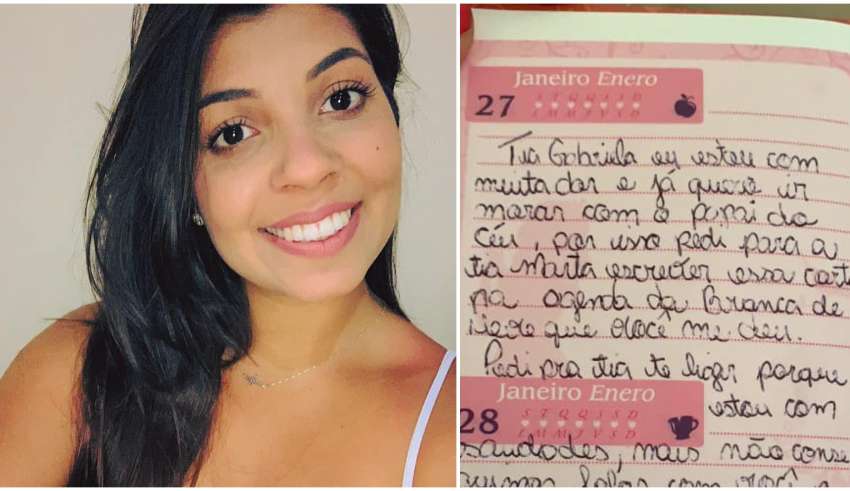 Janeiro Enero
27
S T Q Q S S D
L M M J V S D
Tia Gabriela eu estou com
muita dor e já quero ir
morar com o papai do
céu, por isso pedi para a
tia Marta escrever essa cart
na agenda da Branca de
Neve que você me deu.
Pedi pra tia te ligar porque
Janeiro Enero
28
S T Q Q S S D
L M M J V S D
estou com
saudades, mais não conse
guimos falar com você